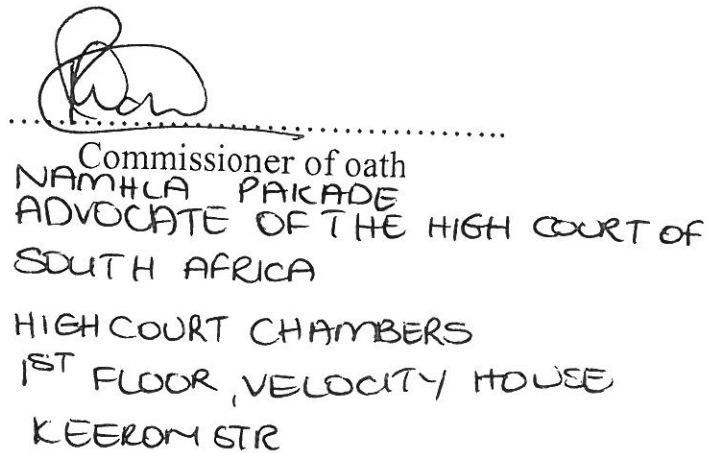 Commissioner of oath
NAMHLA PAKADE
ADVOCATE OF THE HIGH COURT OF
SOUTH AFRICA
HIGH COURT CHAMBERS
1ST FLOOR, VELOCITY HOUSE
KEEROM STR